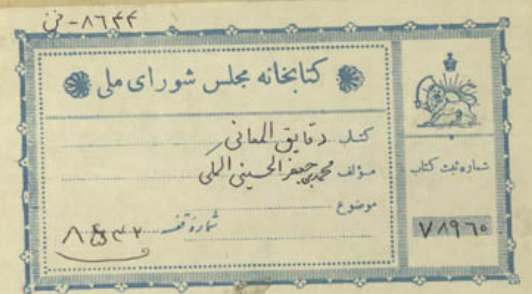 ۸۶۴۴ - فن
کتابخانه مجلس شورای ملی
کتاب دقایق المعانی
مؤلف محمد بن جعفر الحسینی المکی
موضوع
شماره قفسه
شماره ثبت کتاب
۷۸۹۶۰